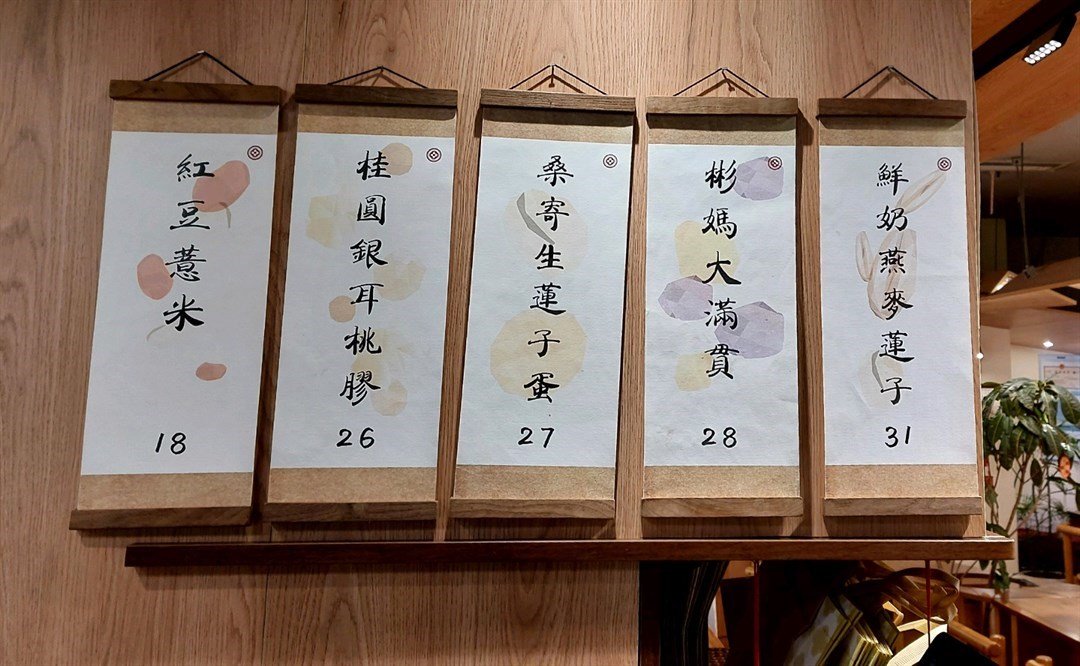 紅豆薏米
18
桂圓銀耳桃膠
26
桑寄生蓮子蛋
27
彬媽大滿貫
28
鮮奶燕麥蓮子
31